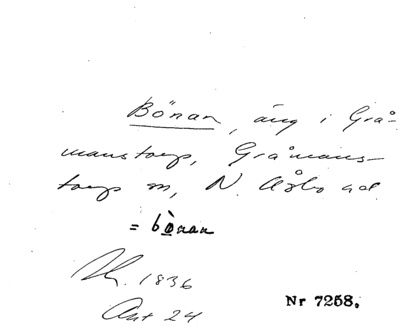 Bönan, äng i Grå-
manstorp, Gråmans-
torps sn, N. Åsbo hd.
= bònan
1836
Ant 24
Nr 7258.